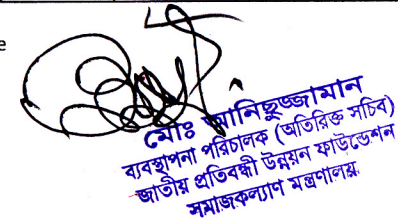 e
মোঃ আনিছুজ্জামান
ব্যবস্থাপনা পরিচালক (অতিরিক্ত সচিব)
জাতীয় প্রতিবন্ধী উন্নয়ন ফাউন্ডেশন
সমাজকল্যাণ মন্ত্রণালয়